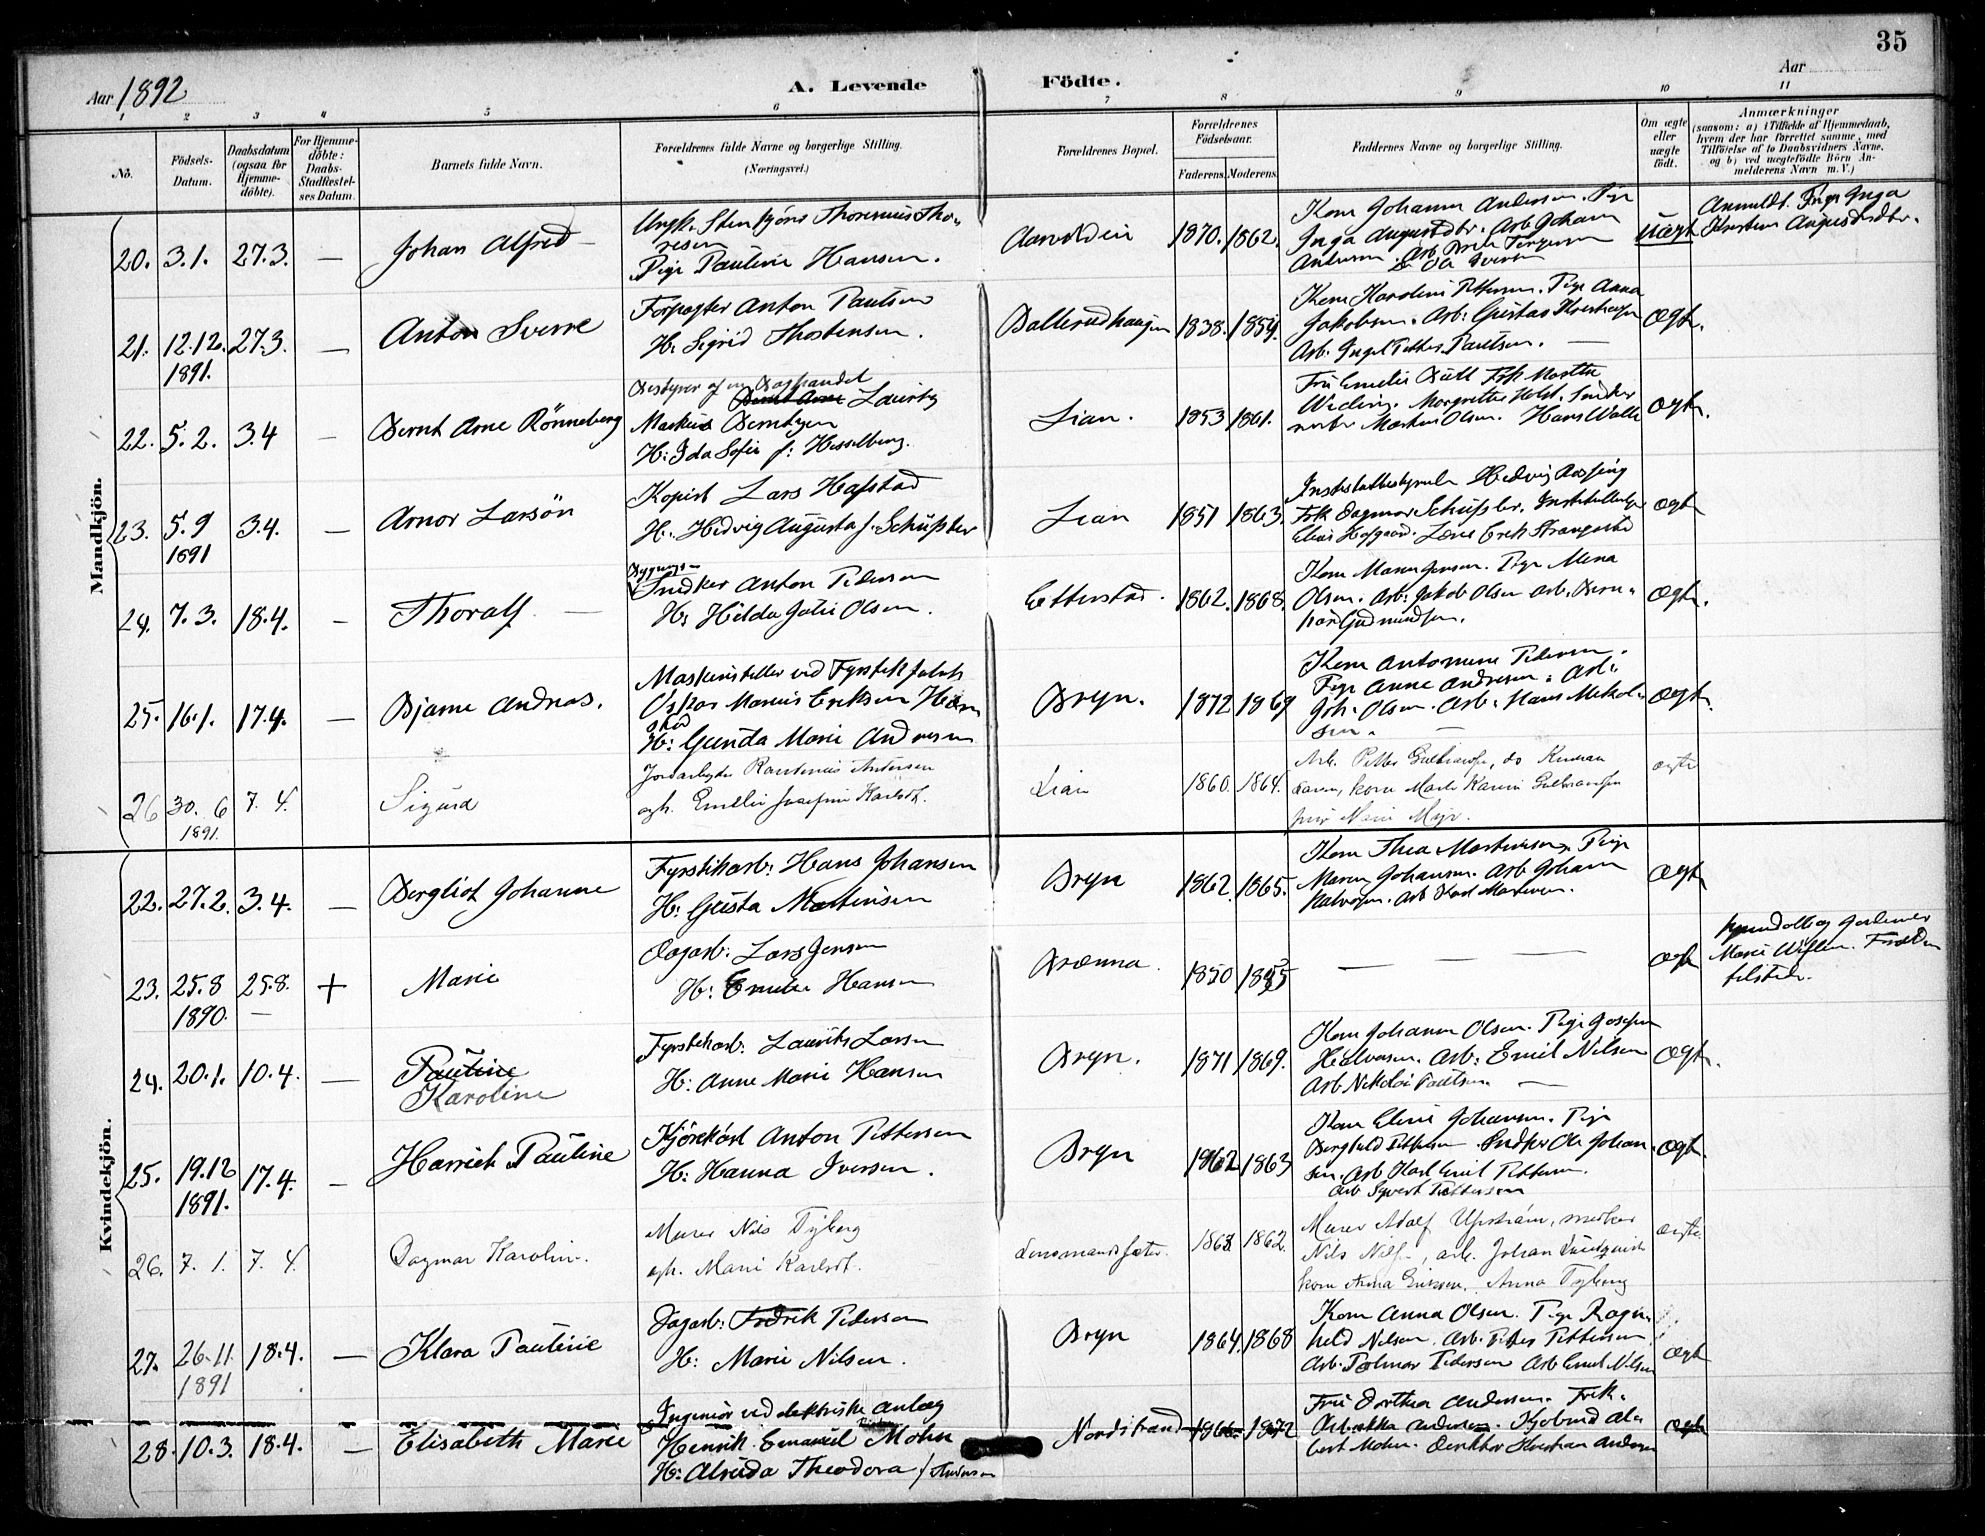 35
Aar 1892
A. Levende Födte.
Aar
1 2 3 4 5 6 7 8 9 10 11
No.
Födsels-Datum.
Daabsdatum (ogsaa for Hjemme-döbte).
For Hjemme-döbte: Daabs-Stadfæstel-ses Datum.
Barnets fulde Navn.
Forældrenes fulde Navne og borgerlige Stilling.
(Næringsvei.)
Forældrenes Bopæl.
Forældrenes Födselsaar.
Faderens. Moderens.
Faddernes Navne og borgerlige Stilling.
Om ægte eller uægte födt.
Anmærkninger
(saasom: a) i Tilfælde af Hjemmedaab, hvem der har forrettet samme, med Tilföielse af to Daabsvidners Navne, og b) ved uægtefödte Börn An-melderens Navn m. V.)
Mandkjön.
20. 3.1. 27.3. — Johan Alfred —
Ungk. Stenbjörn Thoresen
Pige Pauline Hansen.
1870. 1862.
Kone Johanne Andersen. Pige
Inga Augustdtr. Arb. Johan
uægt
Anmeldt. Pige Inga
Kristine Augustdtr.
21. 12.12. 1891. 27.3. — Anton Sverre
Forpagter Anton Paulsen
H: Sigrid Thostensen.
Ballerudhaugen 1838. 1854.
Kone Karoline Pettersen. Pige Anna
Jakobsen. Arb: Gustav
Arb. Ingel Petter Paulsen. —
Ægte.
22. 5.2. 3.4 — Bernt Arne Rönneberg
Bestyrer af en Boghandel
Laurits
Markus Berntzen
H: Ida Sofie f: Hesselberg.
Lian. 1853 1861.
Fru Emelie Bull Frk Marthe
Margrethe Holst.
Markus Olsen. Hans
Ægte.
23. 5.9 1891 3.4. — Arnor Larsön
Kopist Lars Hafstad
H: Hedvig Augusta f. Schüssler
Lian 1851 1863.
Institutbestyrerinde Hedvig
Frk Dagmar Schüssler.
Elias Hofgaard. Lærer Erik
Ægte
24. 7.3. 18.4. — Thoralf. —
Bygnings-
Snedker Anton Pedersen
H: Hilda Jolie Olsen.
Etterstad. 1862. 1868.
Kone Maren Jensen. Pige Mina
Olsen. Arb: Jakob Olsen Arb. Bern-
hard Gudmundsen.
Ægte.
25. 16.1. 17.4. — Bjarne Andreas.
Maskinstiller ved Fyrstikfabrik
Oskar Marius Eriksen
H: Gunda Marie Andersen
Bryn. 1872 1869
Kone Antonine Pedersen.
Pige Anne Andresen. Arb.
Joh. Olsen. Arb. Hans Mikal-
sen. —
Ægte.
26 30. 6 1891. 7. 4. Sigurd
Jordarbeider Rasmus Andersen
og h. Emilie Josefine Karlsdt.
Lian 1860. 1864.
Arb. Petter Gulbrandsen, do
kone Marte Karine Gulbrandsen
pige Marie Myr.
ægte
Kvindekjön.
22. 27.2. 3.4. — Bergliot Johanne
Fyrstikarb: Hans Johansen
H: Gusta Martinsen
Bryn 1862. 1865.
Kone Thea Martinsen. Pige
Maren Johansen. Arb Johan
Halvorsen. Arb Karl Martinsen.
Ægte
23. 25.8 1890. 25.8. — + Marie
Dagarb: Lars Jensen
H: Emilie Hansen
Brænna. 1850 1855
— — —
Ægte
Hjemdöbt af Jordemor
Marie
tilstede.
24. 20.1. 10.4. — Pauline
Karoline
Fyrstikarb: Laurits Larsen
H: Anne Marie Hansen
Bryn. 1871 1869.
Kone Johanne Olsen. Pige Josefine
Halvorsen. Arb: Emil Nilsen
Arb. Nikolai Paulsen. —
Ægte.
25. 19.12 1891. 17.4. — Harriet Pauline
Kjörekarl Anton Pettersen
H: Hanna Iversen.
Bryn 1862 1863
Kone Eline Johansen. Pige
Bergljot Pettersen. Snedker Ole Johan-
sen. Arb. Karl Emil Pettersen.
Arb Syvert Pettersen
Ægte.
26. 7. 1. 7. 4. Dagmar Karolin.
Murer Nils Tyberg
og h. Marie Karlsdt.
Lensmandssæter. 1863 1862.
Murer Adolf Upström, snedker
Nils Nilsen, arb. Johan Lindquist
kone Anna Eriksen. Anna Tyberg
ægte.
27. 26.11 1891 18.4. — Klara Pauline
Dagarb: Fredrik Pedersen
H: Marie Nilsen.
Bryn 1864. 1868
Kone Anna Olsen. Pige Ragn-
hild Nilsen. Arb. Petter Pettersen
Arb. Palmar Pedersen Arb Emil Nilsen
Ægte
28. 10.3. 18.4. — Elisabeth Marie
Ingeniör ved elektriske anlæg
Henrik Emanuel Mohn
H: Alvida Theodora f. Andersen
Nordstrand 1866 1872
Fru Dorthea Andersen. Frk.
Andersen. Al-
bert Mohn. Direktör Kristian Andersen
Ægte